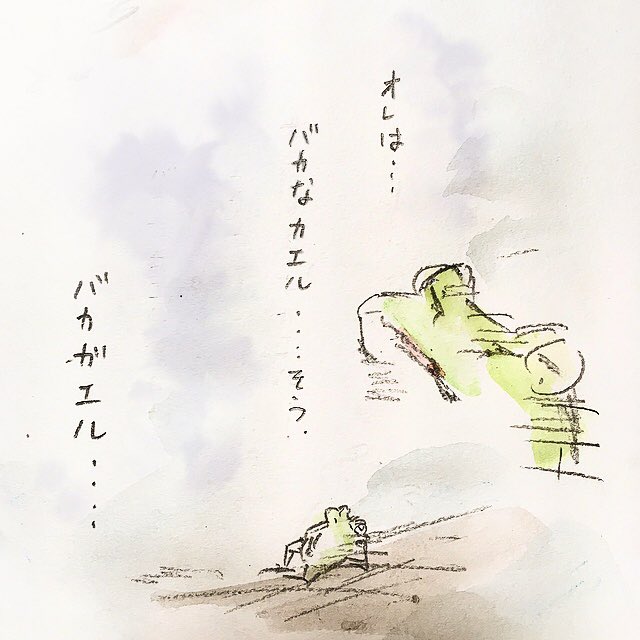 オレは・・・
バカなカエル・・・・そう・・
バカガエル・・・・